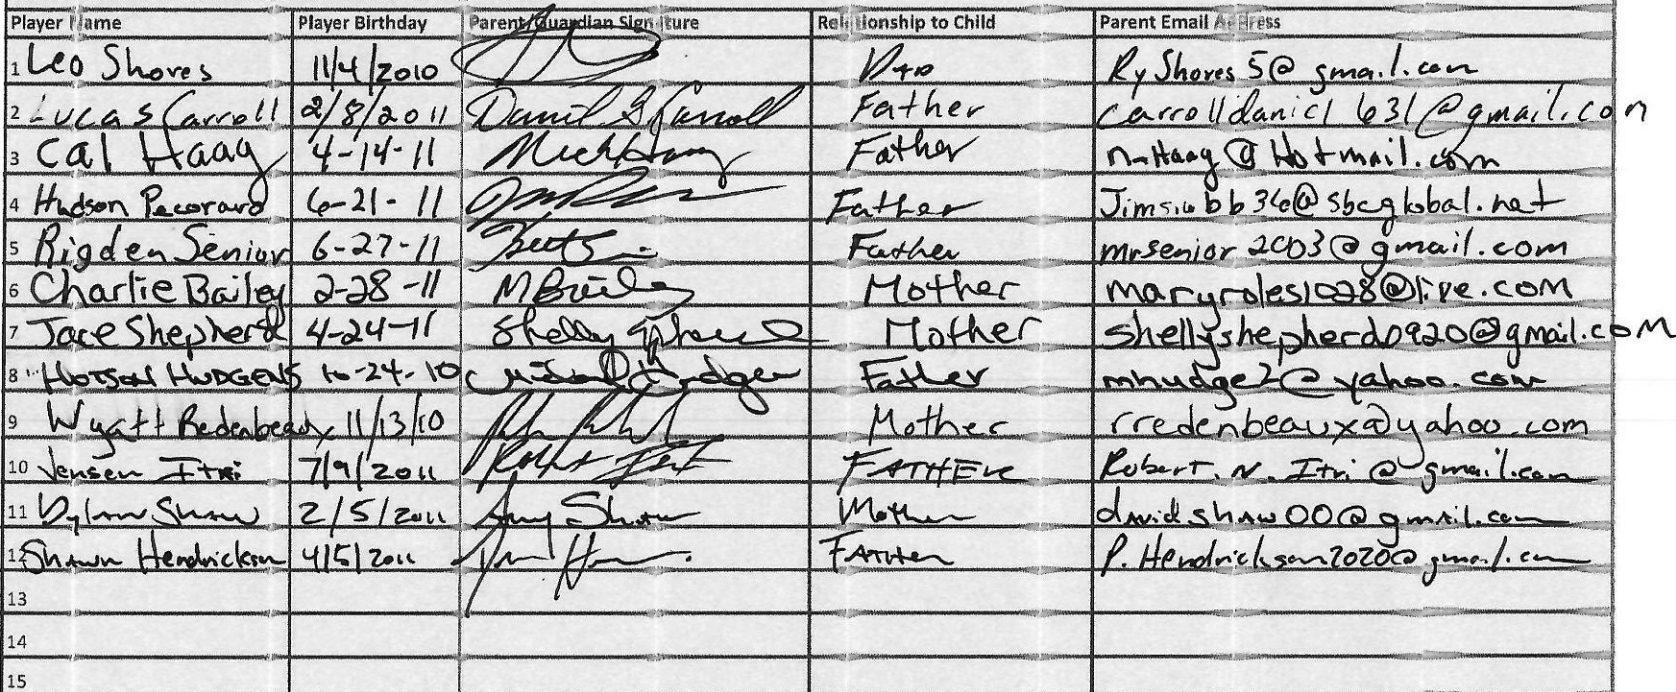 Player Name Player Birthday Parent/Guardian Signature Relationship to Child Parent Email Address
1 Leo Shores 11/4/2010 Dad RyShores5@gmail.com
2 Lucas Carroll 2/8/2011 Daniel Carroll Father carrolldaniel631@gmail.com
3 Cal Haag 4-14-11 Father @Hotmail.com
4 Hudson Pecoraro 6-21-11 Father @sbcglobal.net
5 Rigden Senior 6-27-11 Father mrsenior2003@gmail.com
6 Charlie Bailey 2-28-11 M Bailey Mother maryroles1028@live.com
7 Jace Shepherd 4-24-11 Shelly Mother shellyshepherd0920@gmail.com
8 HUDGENS 10-24-10 Father @yahoo.com
9 Wyatt Redenbeaux 11/13/10 Mother rredenbeaux@yahoo.com
10 Jensen Itri 7/9/2011 FATHER Robert.N.Itri@gmail.com
11 Dylan Shaw 2/5/2011 Amy Shaw Mother davidshaw00@gmail.com
12 Shawn Hendrickson 4/5/2011 FATHER P.Hendrickson2020@gmail.com
13
14
15